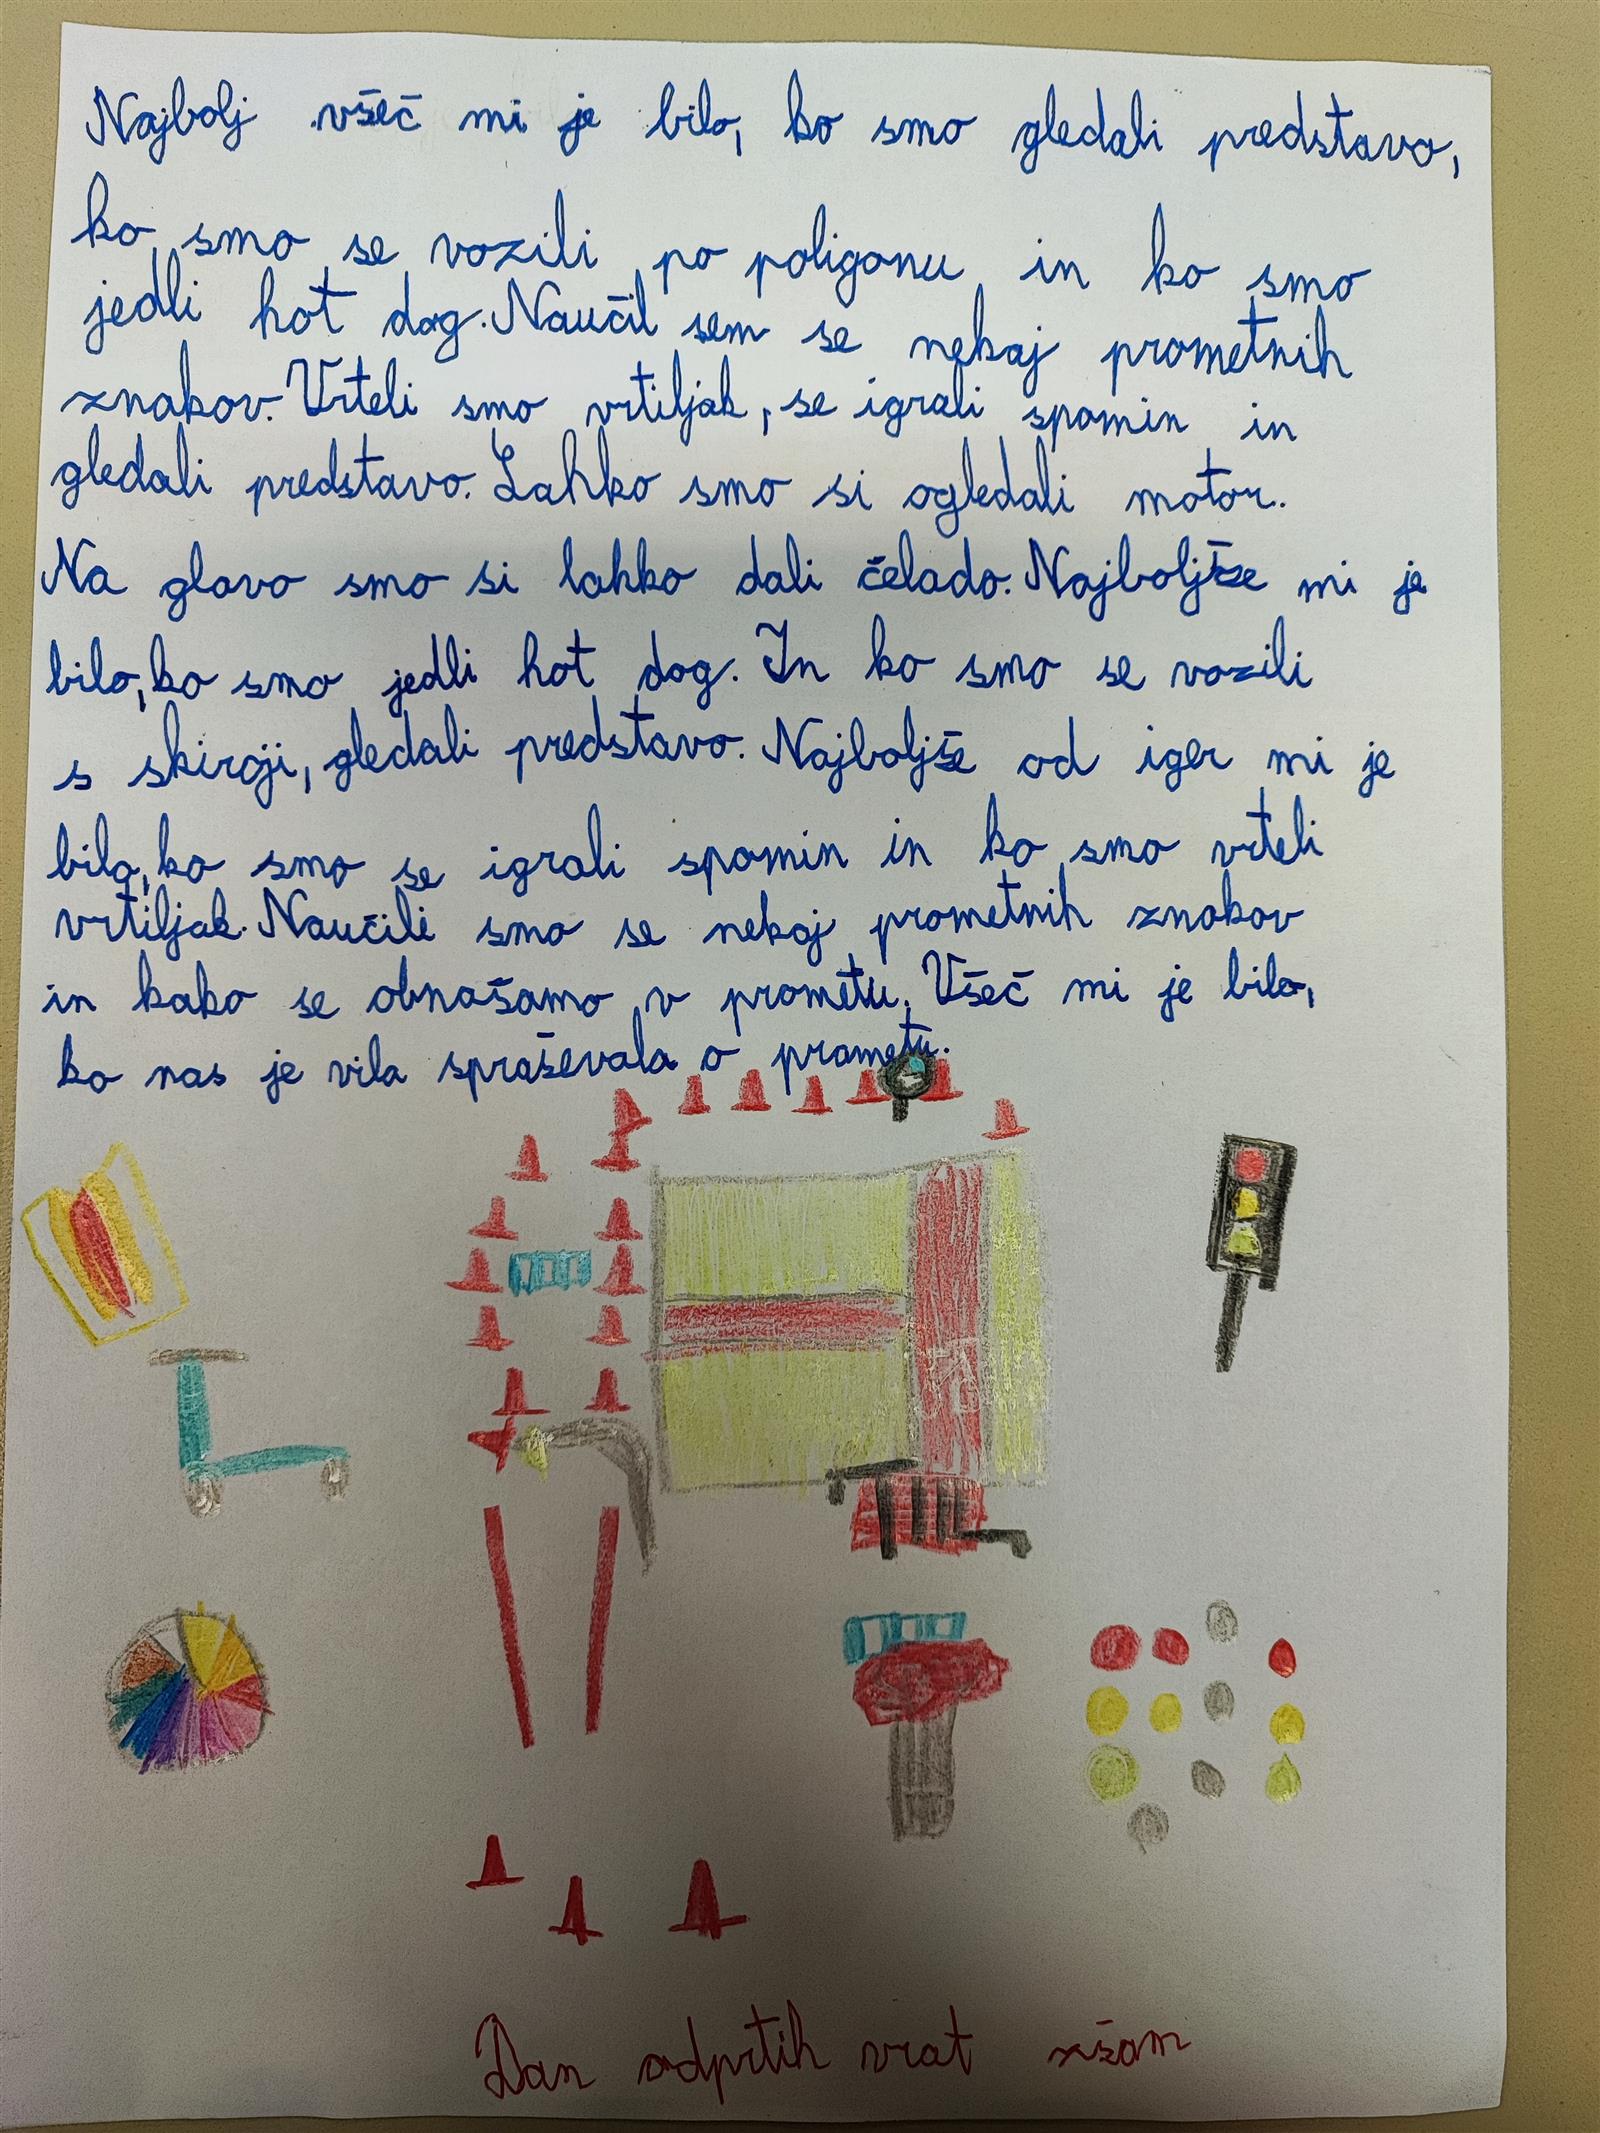 Najbolj všeč mi je bilo, ko smo gledali predstavo,
ko smo se vozili po poligonu in ko smo
jedli hot dog. Naučil sem se nekaj prometnih
znakov. Vrteli smo vrtiljak, se igrali spomin in
gledali predstavo. Lahko smo si ogledali motor.
Na glavo smo si lahko dali čelado. Najboljše mi je
bilo, ko smo jedli hot dog. In ko smo se vozili
s skirqji, gledali predstavo. Najboljše od iger mi je
bilo, ko smo se igrali spomin in ko smo vrteli
vrtiljak. Naučili smo se nekaj prometnih znakov
in kako se obnašamo v prometu. Všeč mi je bilo,
ko nas je vila spraševala o prometu.
Dan odprtih vrat